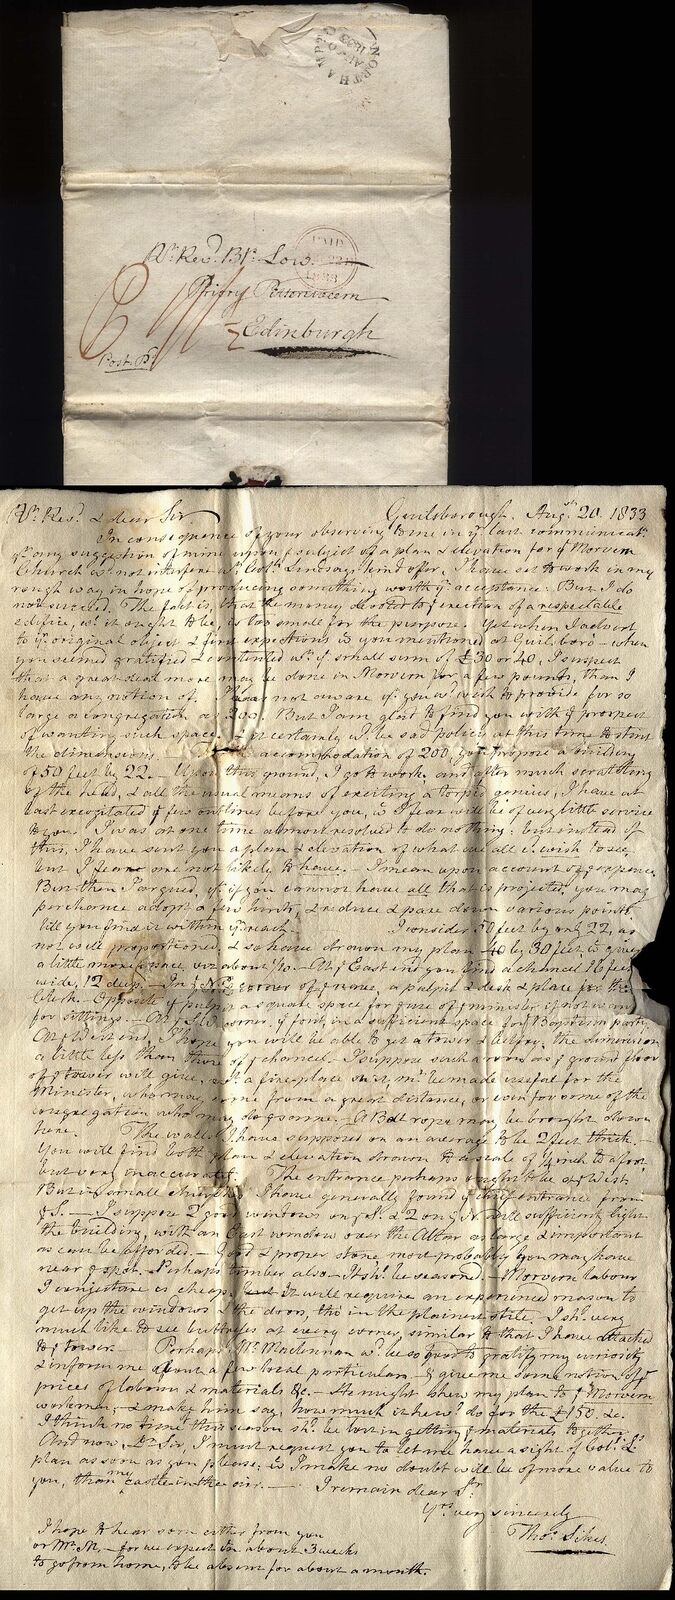 NORTHAMPTON
1833
PAID
1833
Rt. Revd. Bp. Low
Priory Pittenweem
Edinburgh
Post Pd.
Rt. Revd. & dear Sir
Guilsborough. Augst. 20. 1833
In consequence of your observing to me in yr. last communicatn.
yt. any suggestion of mine upon ye subject of a plan & elevation for ye Morvern
Church wd. not interfere wh. Col. Lindsay's kind offer, I have set to work in my
rough way in hope of producing something worth yr. acceptance. But I do
not succeed. The fact is, that the money devoted to ye erection of a respectable
edifice, as it ought to be, is too small for the purpose. Yet when I advert
to yr. original object & first expections as you mentioned at Guilsboro' - when
you seemed gratified & contented wh. ye small sum of £30 or 40, I suspect
that a great deal more may be done in Morvern for a few pounds, than I
have any notion of. I was not aware yt. you wd. wish to provide for so
large a congregation as 200. But I am glad to find you with ye prospect
of wanting such space. It certainly wd. be sad policy at this time to stint
the dimensions. accommodation of 200 you propose a building
of 50 feet by 22. - Upon this ground, I go to work, and after much scratching
of the head, & all the usual means of exciting a torpid genius, I have at
last excogitated ye few outlines before you, wh. I fear will be of very little service
to you. I was at one time almost resolved to do nothing: but instead of
this, I have sent you a plan & elevation of what we all shd. wish to see,
but I fear are not likely to have. - I mean upon account of ye expence.
But then I argued, yt. if you cannot have all that is projected, you may
perchance adopt a few hints, & reduce & pare down various points,
till you find it within yr. reach. I consider 50 feet by only 22, as
not well proportioned, & so have drawn my plan 40 by 30 feet, wh. gives
a little more space, viz about 1/10. - At ye East end you find a chancel 16 feet
wide, 12 deep. - In ye N.E. corner of ye nave, a pulpit & desk & place for the
Clerk. - Opposite ye pulpit a square space for ye use of ye minister, if not wanted
for sittings. - At ye corner, ye font, and a sufficient space for ye Baptism party.
At ye West end, I hope you will be able to get a tower & belfry. The dimension
a little less than those of ye chancel. I suppose such a room as ye ground floor
of ye tower will give, wh. a fireplace in it mt. be made useful for the
Minister, who may come from a great distance, or even for some of the
congregation who may do ye same. - A Bell rope may be brought down
here. The walls I have supposed on an average to be 2 feet thick. -
You will find both plan & elevation drawn to a scale of 1/4 inch to a foot,
but very inaccurate. The entrance perhaps ought to be at West.
But in small churches I have generally found ye chief entrance from
ye S. - I suppose 2 good windows on ye S. & 2 on ye N. will sufficiently light
the building, with an East window over the Altar as large & important
as can be afforded. - Good & proper stone most probably you may have
near ye spot. Perhaps timber also. - It shd. be seasoned. - Morvern labour
I conjecture is cheap. But it will require an experienced mason to
get up the windows & the doors, tho' in the plainest stile. I shd. very
much like to see buttresses at every corner, similar to that I have attached
to ye tower. Perhaps Mr. Maclennan wd. be so good to gratify my curiosity
& inform me about a few local particulars - & give me some notion of ye
prices of labour & materials &c. - He might shew my plan to ye Morvern
workmen, & make him say, how much it he wd. do for the £150. &c.
I think no time this season shd. be lost in getting ye materials together.
And now, Dr. Sir, I must request you to let me have a sight of Col. L's
plan as soon as you please: wh. I make no doubt will be of more value to
you, than my castle in the air. - I remain dear Sr.
Yrs. very sincerely
Thos. Sikes.
I hope to hear soon either from you
or Mr. M. - for we expect in about 3 weeks
to go from home, to be absent for about a month.